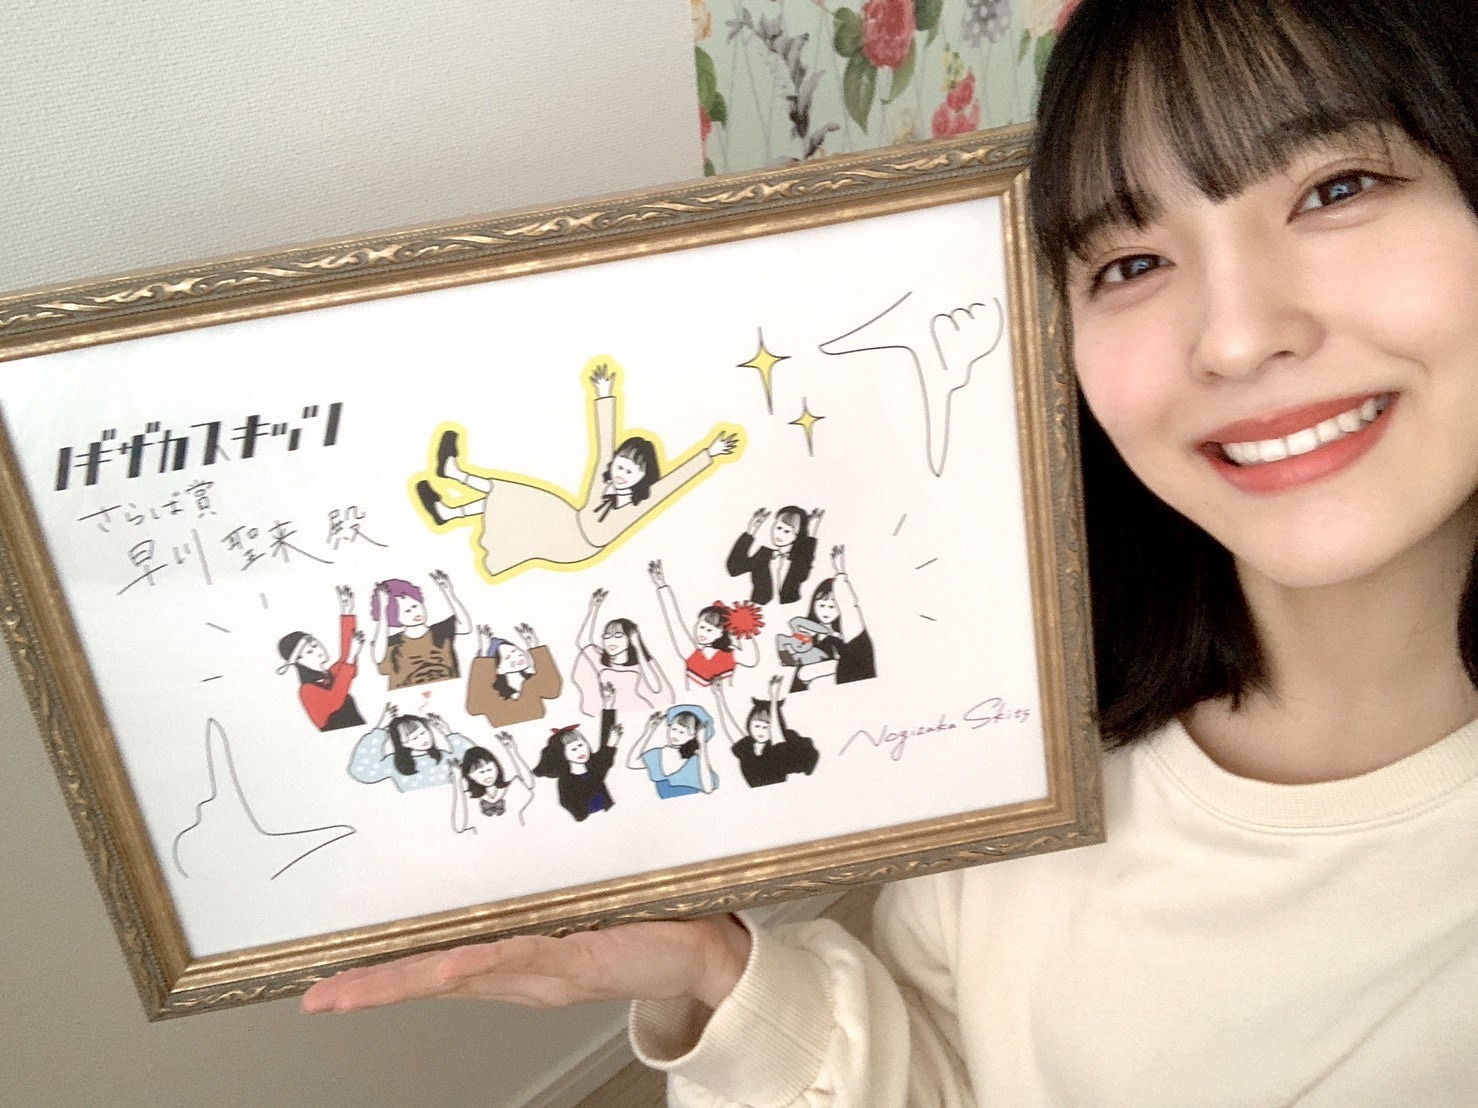 ノギザカスキッツ
さらば賞
早川聖来殿
Nogizaka Skits